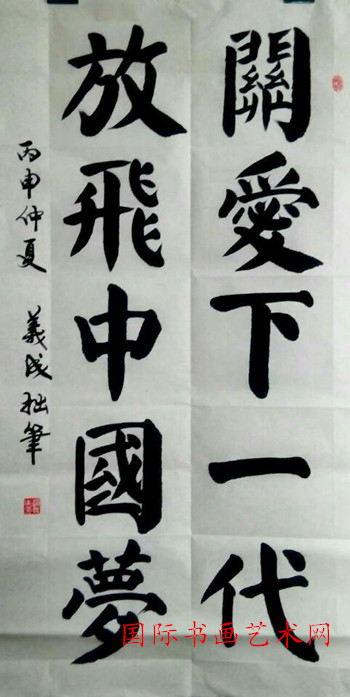 關愛下一代
放飛中國夢
丙申仲夏 義成拙筆
国际书画艺术网